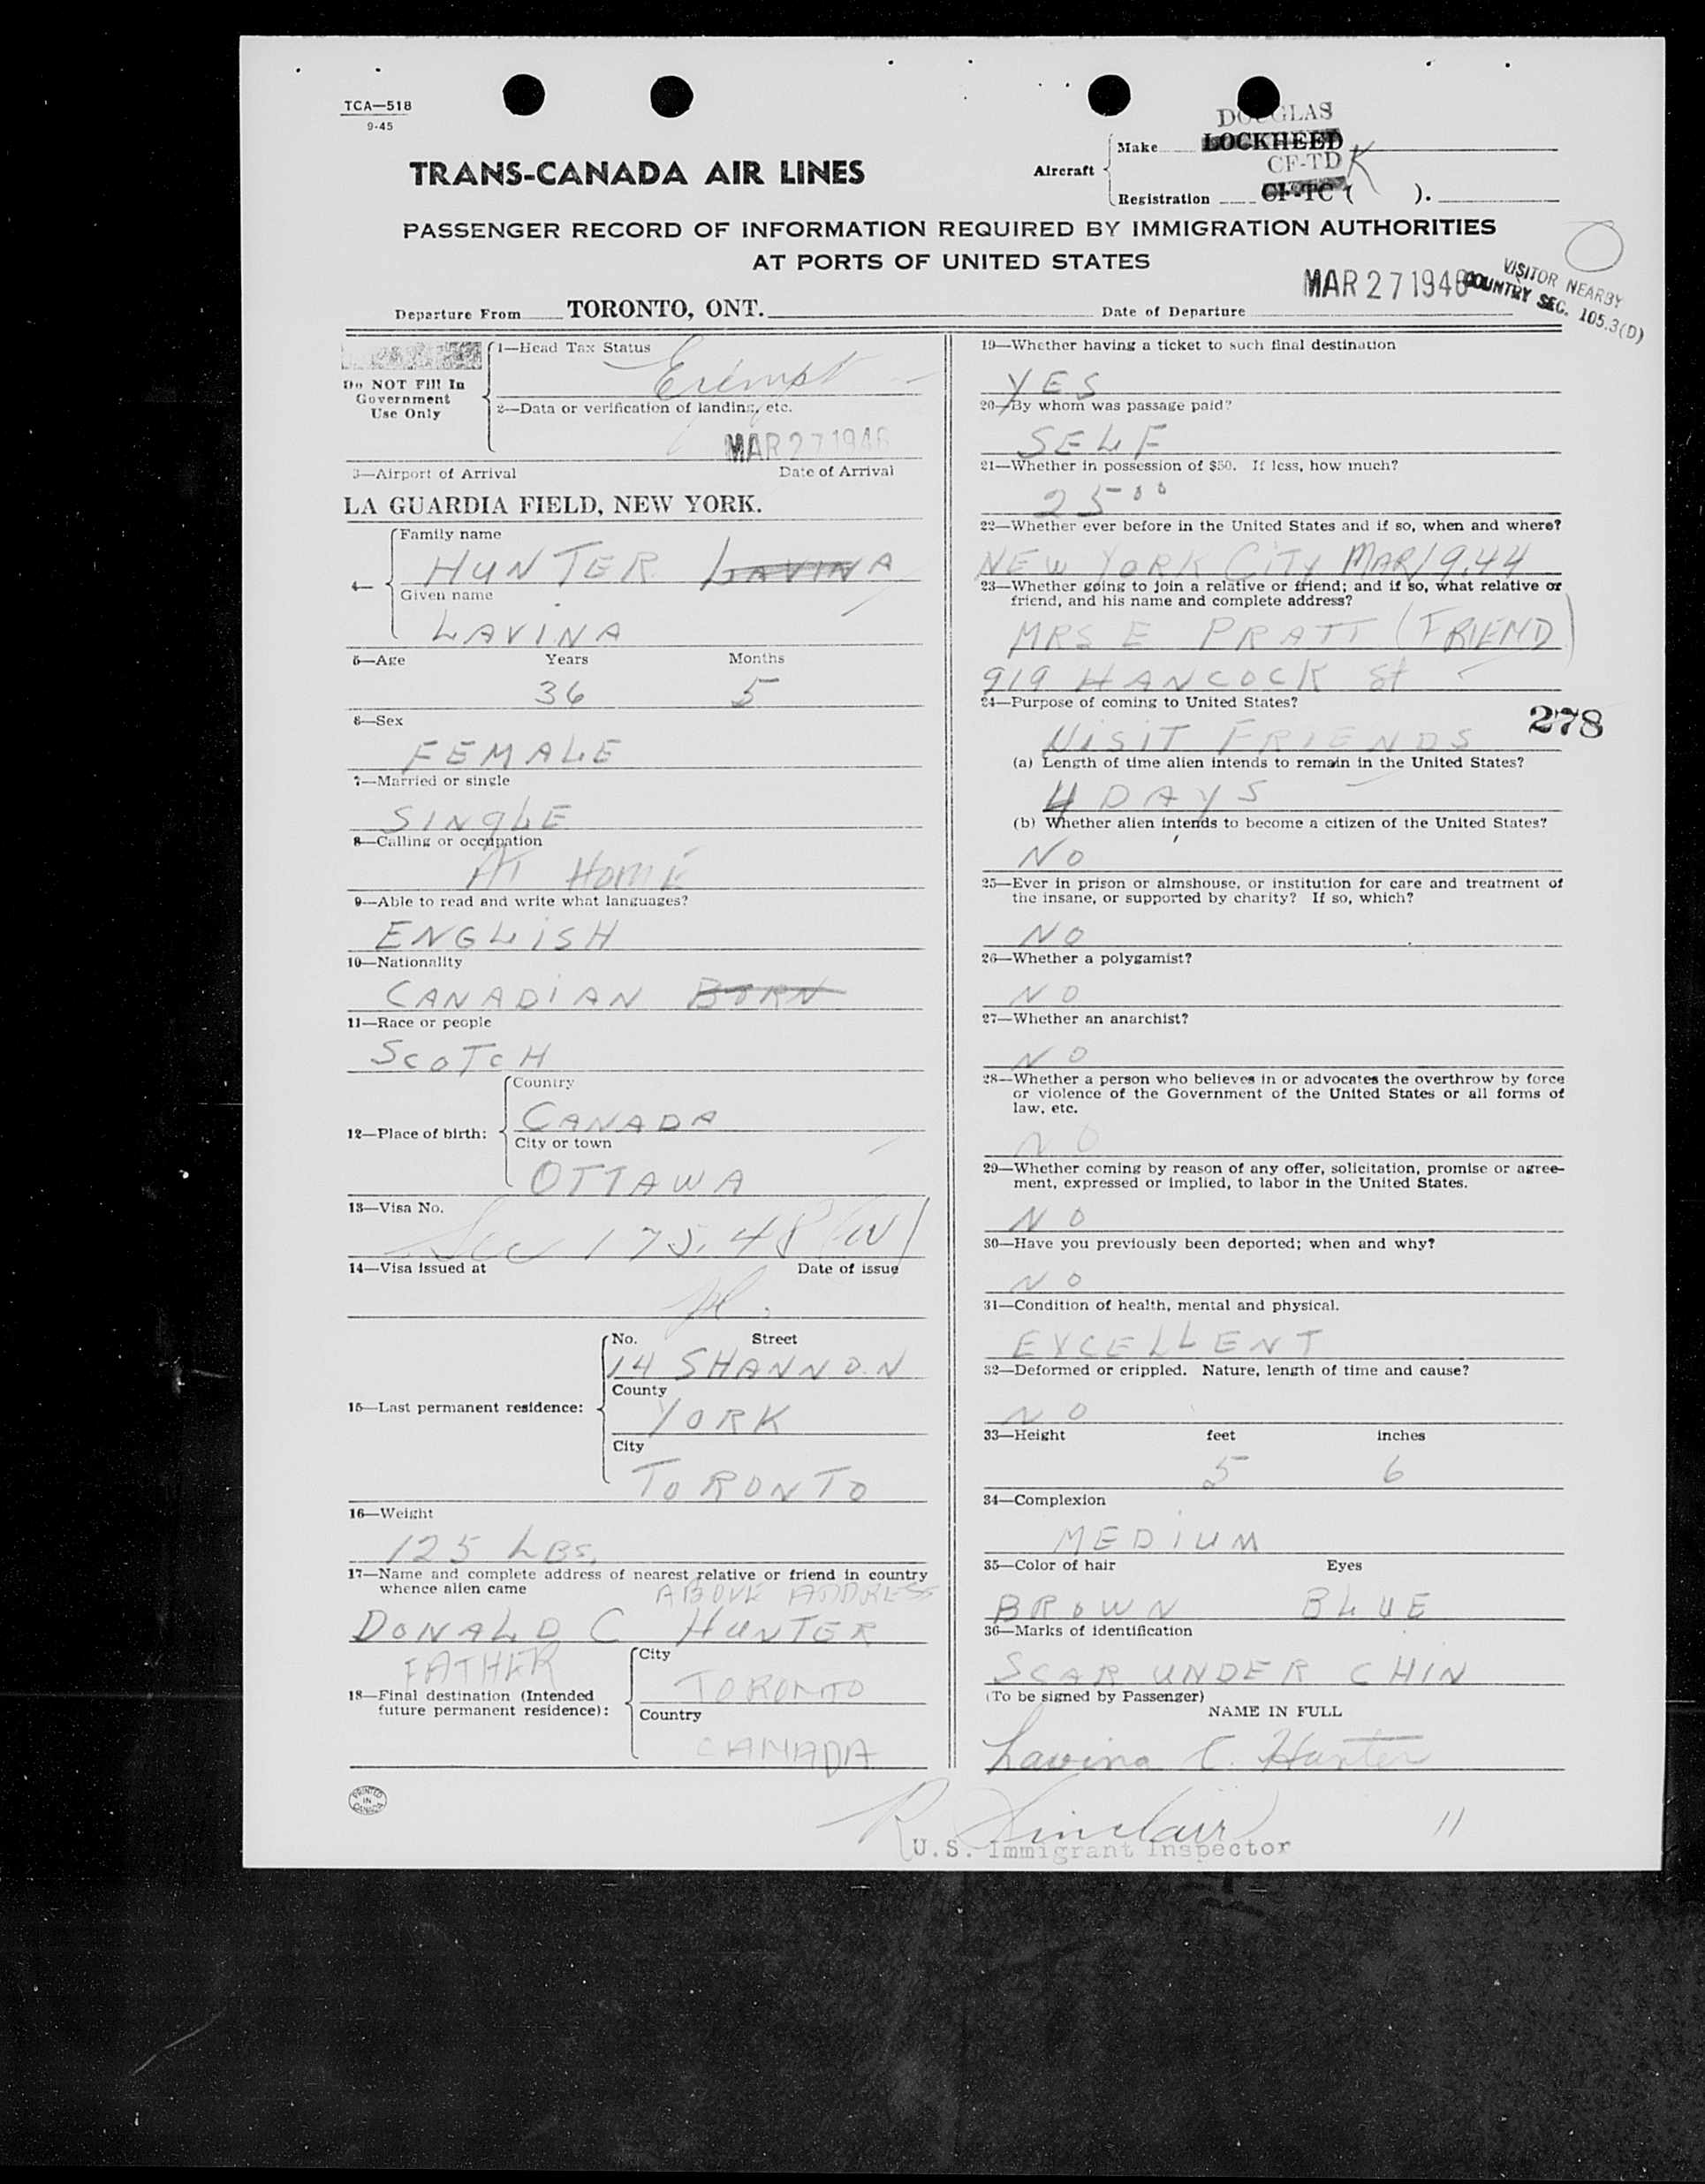 TCA—518
9-45
TRANS-CANADA AIR LINES
Aircraft
DOUGLAS
Make LOCKHEED
CF-TD K
Registration CF-TC ( ).
PASSENGER RECORD OF INFORMATION REQUIRED BY IMMIGRATION AUTHORITIES
AT PORTS OF UNITED STATES
VISITOR NEARBY
COUNTRY SEC. 105.3(D)
MAR 27 1946
Departure From TORONTO, ONT. Date of Departure
Do NOT Fill In
Government
Use Only
1—Head Tax Status
Exempt
2—Data or verification of landing, etc.
MAR 27 1946
3—Airport of Arrival Date of Arrival
LA GUARDIA FIELD, NEW YORK.
4—
Family name
HUNTER LAVINA
Given name
LAVINA
5—Age Years Months
36 5
6—Sex
FEMALE
7—Married or single
SINGLE
8—Calling or occupation
AT HOME
9—Able to read and write what languages?
ENGLISH
10—Nationality
CANADIAN BORN
11—Race or people
SCOTCH
12—Place of birth:
Country
CANADA
City or town
OTTAWA
13—Visa No.
Sec 175.48
14—Visa issued at Date of issue
15—Last permanent residence:
No. Street
14 SHANNON
County
YORK
City
TORONTO
16—Weight
125 LBS.
17—Name and complete address of nearest relative or friend in country
whence alien came
ABOVE ADDRESS
DONALD C HUNTER
FATHER
18—Final destination (Intended
future permanent residence):
City
TORONTO
Country
CANADA
PRINTED
IN
CANADA
19—Whether having a ticket to such final destination
YES
20—By whom was passage paid?
SELF
21—Whether in possession of $50. If less, how much?
25 00
22—Whether ever before in the United States and if so, when and where?
NEW YORK CITY MAR 1944
23—Whether going to join a relative or friend; and if so, what relative or
friend, and his name and complete address?
MRS E PRATT (FRIEND)
919 HANCOCK St
24—Purpose of coming to United States?
278
VISIT FRIENDS
(a) Length of time alien intends to remain in the United States?
4 DAYS
(b) Whether alien intends to become a citizen of the United States?
NO
25—Ever in prison or almshouse, or institution for care and treatment of
the insane, or supported by charity? If so, which?
NO
26—Whether a polygamist?
NO
27—Whether an anarchist?
NO
28—Whether a person who believes in or advocates the overthrow by force
or violence of the Government of the United States or all forms of
law, etc.
NO
29—Whether coming by reason of any offer, solicitation, promise or agree-
ment, expressed or implied, to labor in the United States.
NO
30—Have you previously been deported; when and why?
NO
31—Condition of health, mental and physical.
EXCELLENT
32—Deformed or crippled. Nature, length of time and cause?
NO
33—Height feet inches
5 6
34—Complexion
MEDIUM
35—Color of hair Eyes
BROWN BLUE
36—Marks of identification
SCAR UNDER CHIN
(To be signed by Passenger)
NAME IN FULL
Lavina C. Hunter
R Sinclair
11
U.S. Immigrant Inspector